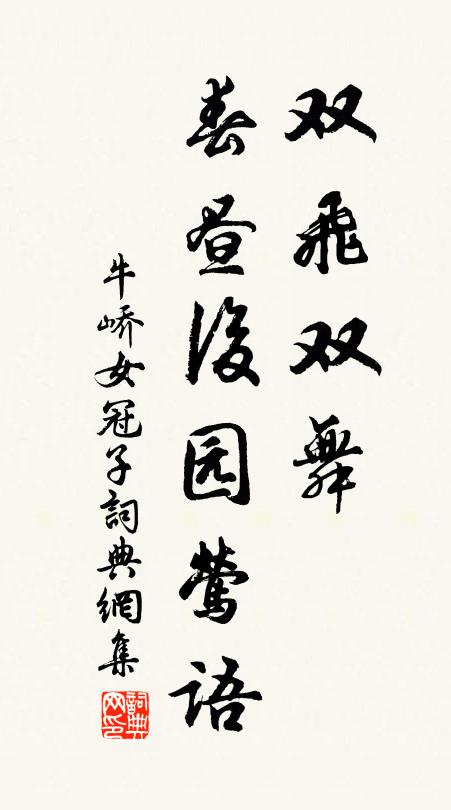 双飞双舞
春昼後园莺语
牛嶠女冠子詞典網集
詞典网印